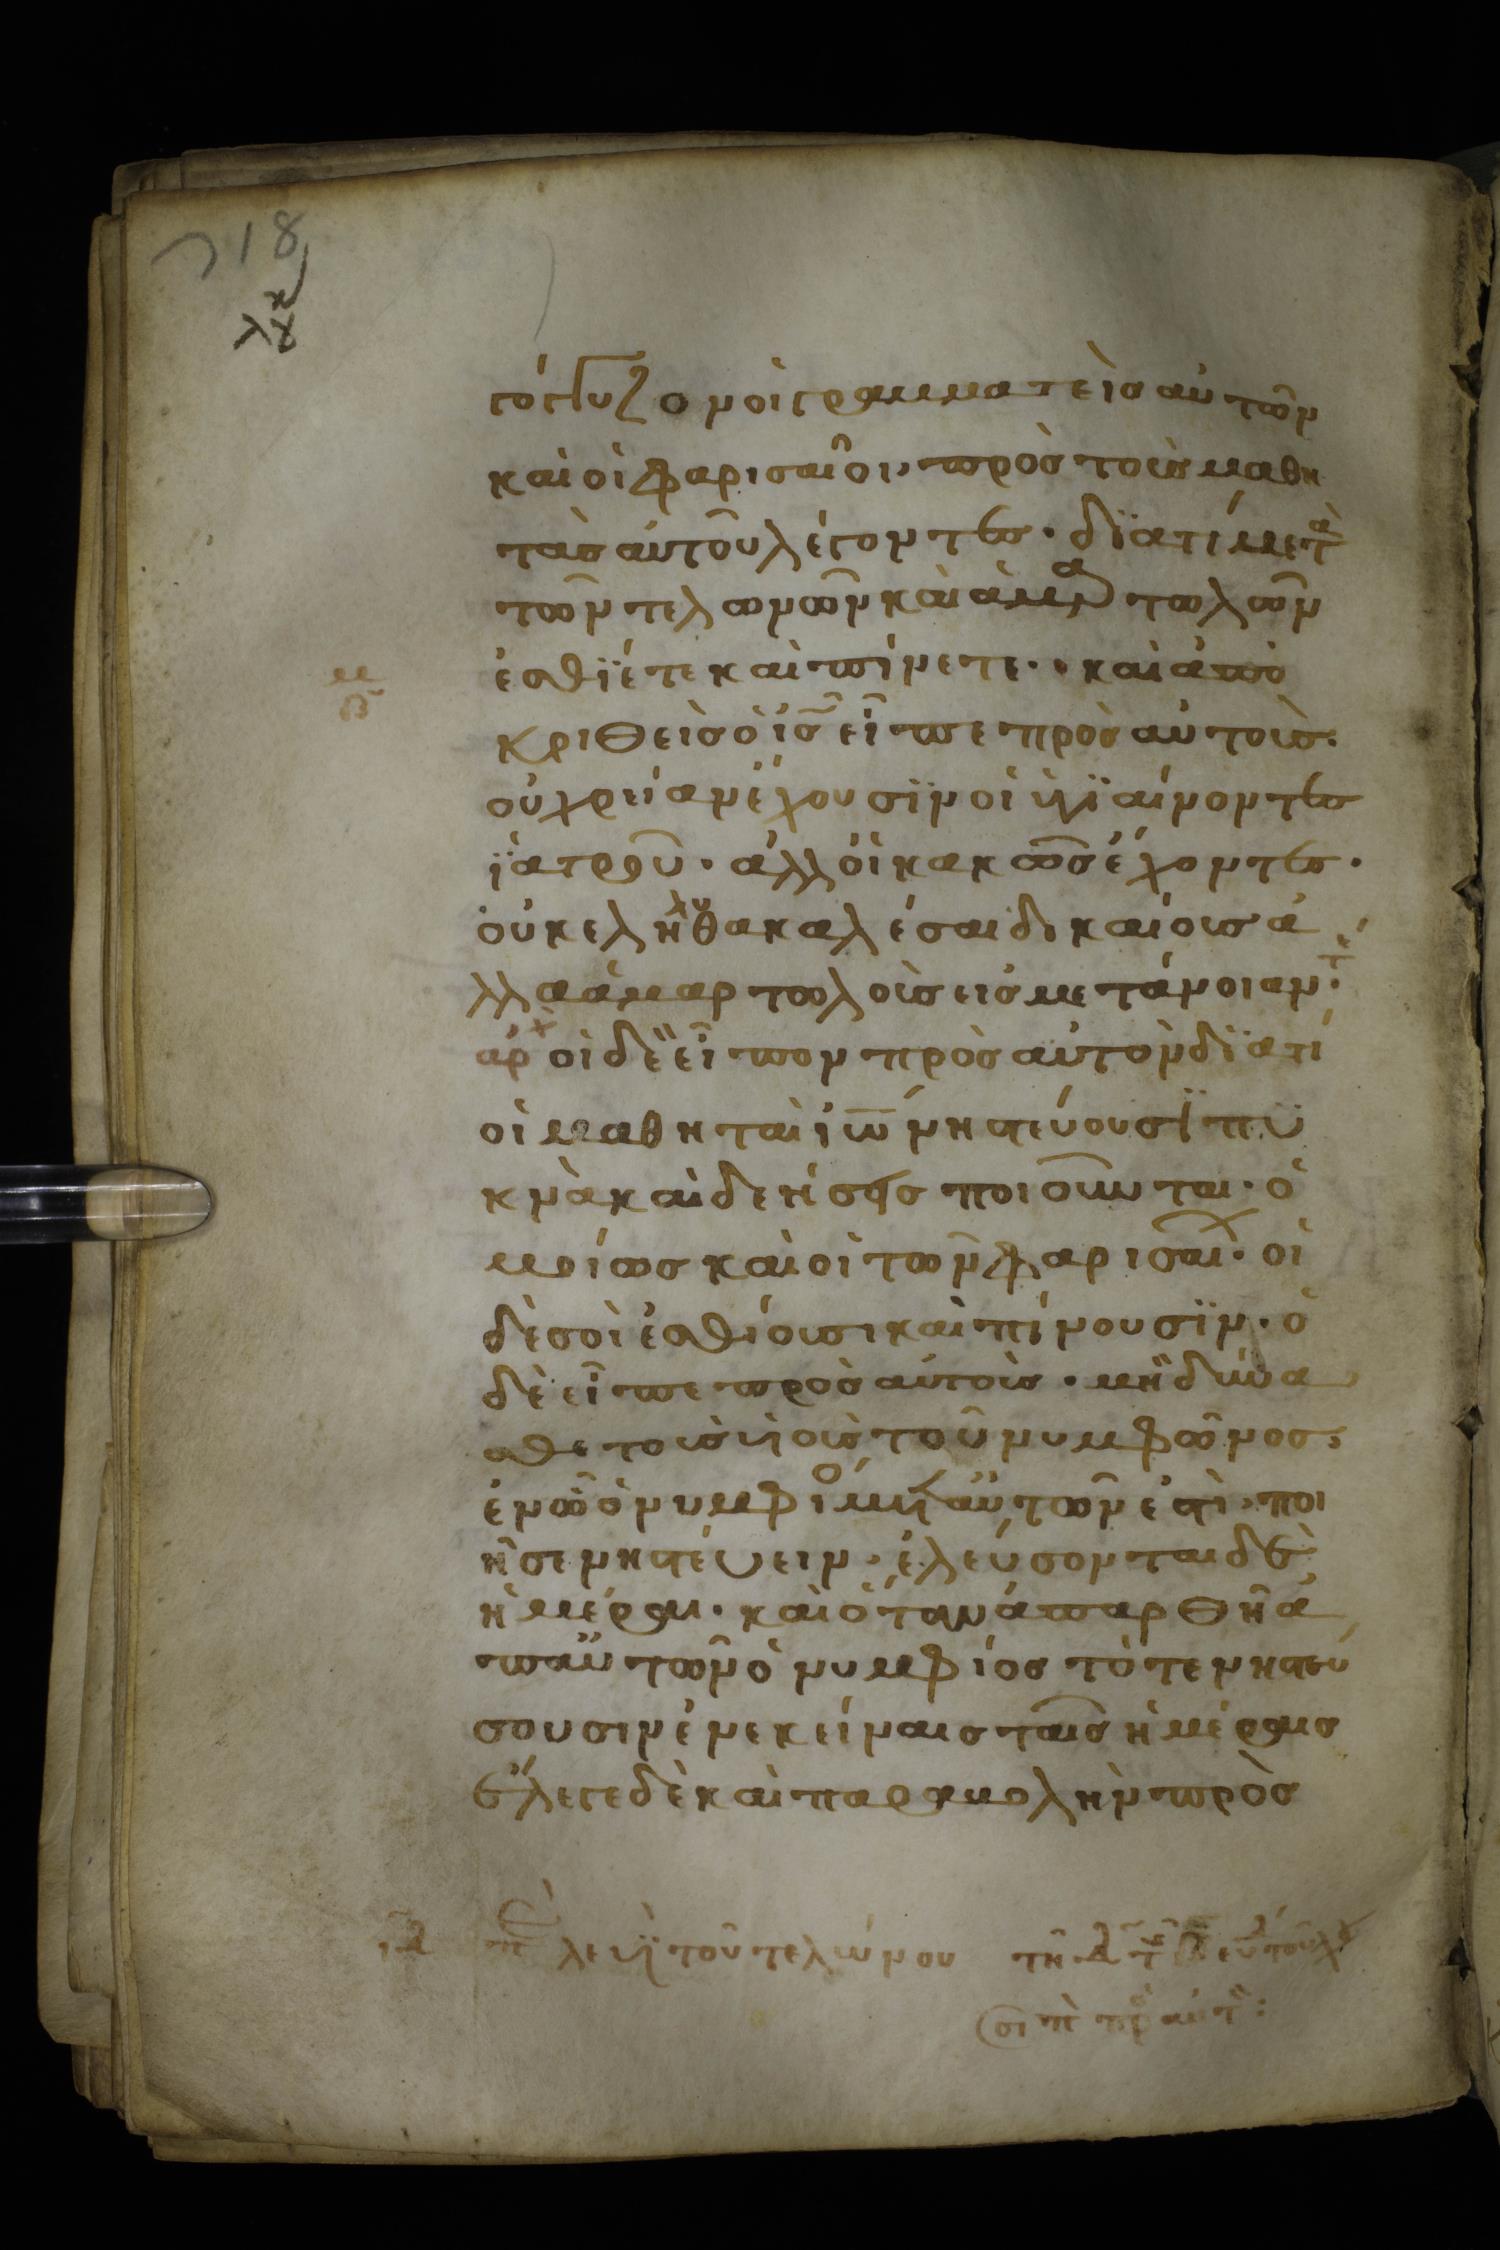 218
γόγγυζον οἱ γραμματεῖς αὐτῶν
καὶ οἱ φαρισαῖοι, πρὸς τοὺς μαθη
τὰς αὐτοῦ λέγοντες· διατί μετὰ
τῶν τελωνῶν καὶ ἁμαρτωλῶν
ἐσθίετε καὶ πίνετε·· καὶ ἀπο
κριθεὶς ὁ ἰς εἶπε πρὸς αὐτούς·
οὐ χρείαν ἔχουσϊν οἱ ὑγϊαίνοντες
ϊατροῦ· ἀλλ οἱ κακῶς ἔχοντες·
οὐκ εληλυθα καλέσαι δικαίους ἀ
λλα ἁμαρτωλοὺς εἰς μετάνοιαν·
αρχ οἱ δὲ εἶπον πρὸς αὐτὸν δϊατί
οἱ μαθηταὶ ἰω νηστεύουσϊ πυ
κνὰ καὶ δεήσεις ποιοῦνται· ὁ
μοίως καὶ οἱ τῶν φαρισαι· οἱ
δὲ σοὶ ἐσθίουσι καὶ πίνουσϊν· ὁ
δὲ εἶπε πρὸς αὐτούς· μὴ δύνα
σθε τοὺς ὑιοὺς τοῦ νυμφῶνος,
ἐν ὧ ὁ νυμφίος μετ αὐτῶν ἐστὶ, ποι
ῆσαι νηστεύειν· ἐλεύσονται δὲ
ἡμέραι· καὶ ὅταν ἀπαρθῆ ἀ
π αὐτῶν ὁ νυμφίος τότε νηστεύ
σουσιν ἐν ἐκείναις ταῖς ἡμέραις
ἔλεγε δὲ καὶ παραβολὴν πρὸς
λευῒ τοῦ τελώνου